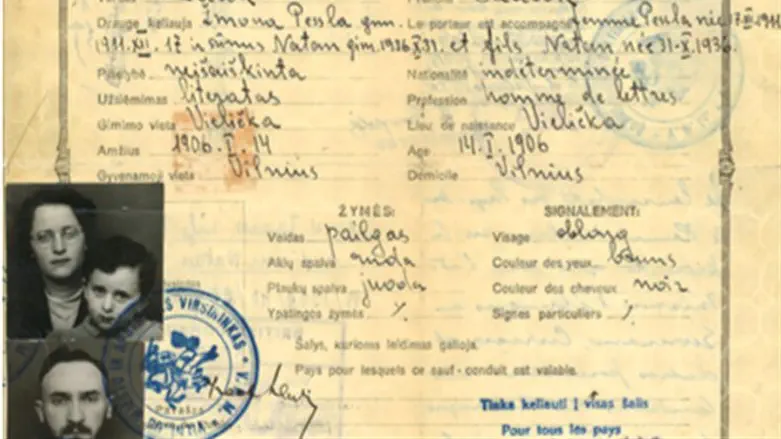 Draugė keliauja žmona Pessla gim. Le porteur est accompagné femme Pessla née 17.XII.1911
1911.XII.17 ir sūnus Natan gim. 1936.X.31. et fils Natan née 31-X.1936.
Pilietybė neišaiškinta Nationalité indéterminée
Užsiėmimas literatas Profession homme de lettres.
Gimimo vieta Vielička Lieu de naissance Vielička
Amžius 1906.I.14 Age 14.I.1906
Gyvenamoji vieta Vilnius Domicile Vilnius
ŽYMĖS: SIGNALEMENT:
Veidas pailgas Visage oblong
Akių spalva ruda Couleur des yeux bruns
Plaukų spalva juoda Couleur des cheveux noir
Ypatingos žymės Signes particuliers
Šalys, kurioms leidimas galioja.
Pays pour lesquels ce sauf-conduit est valable.
VIRŠININKAS
Tinka keliauti į visas šalis
Pour tous les pays